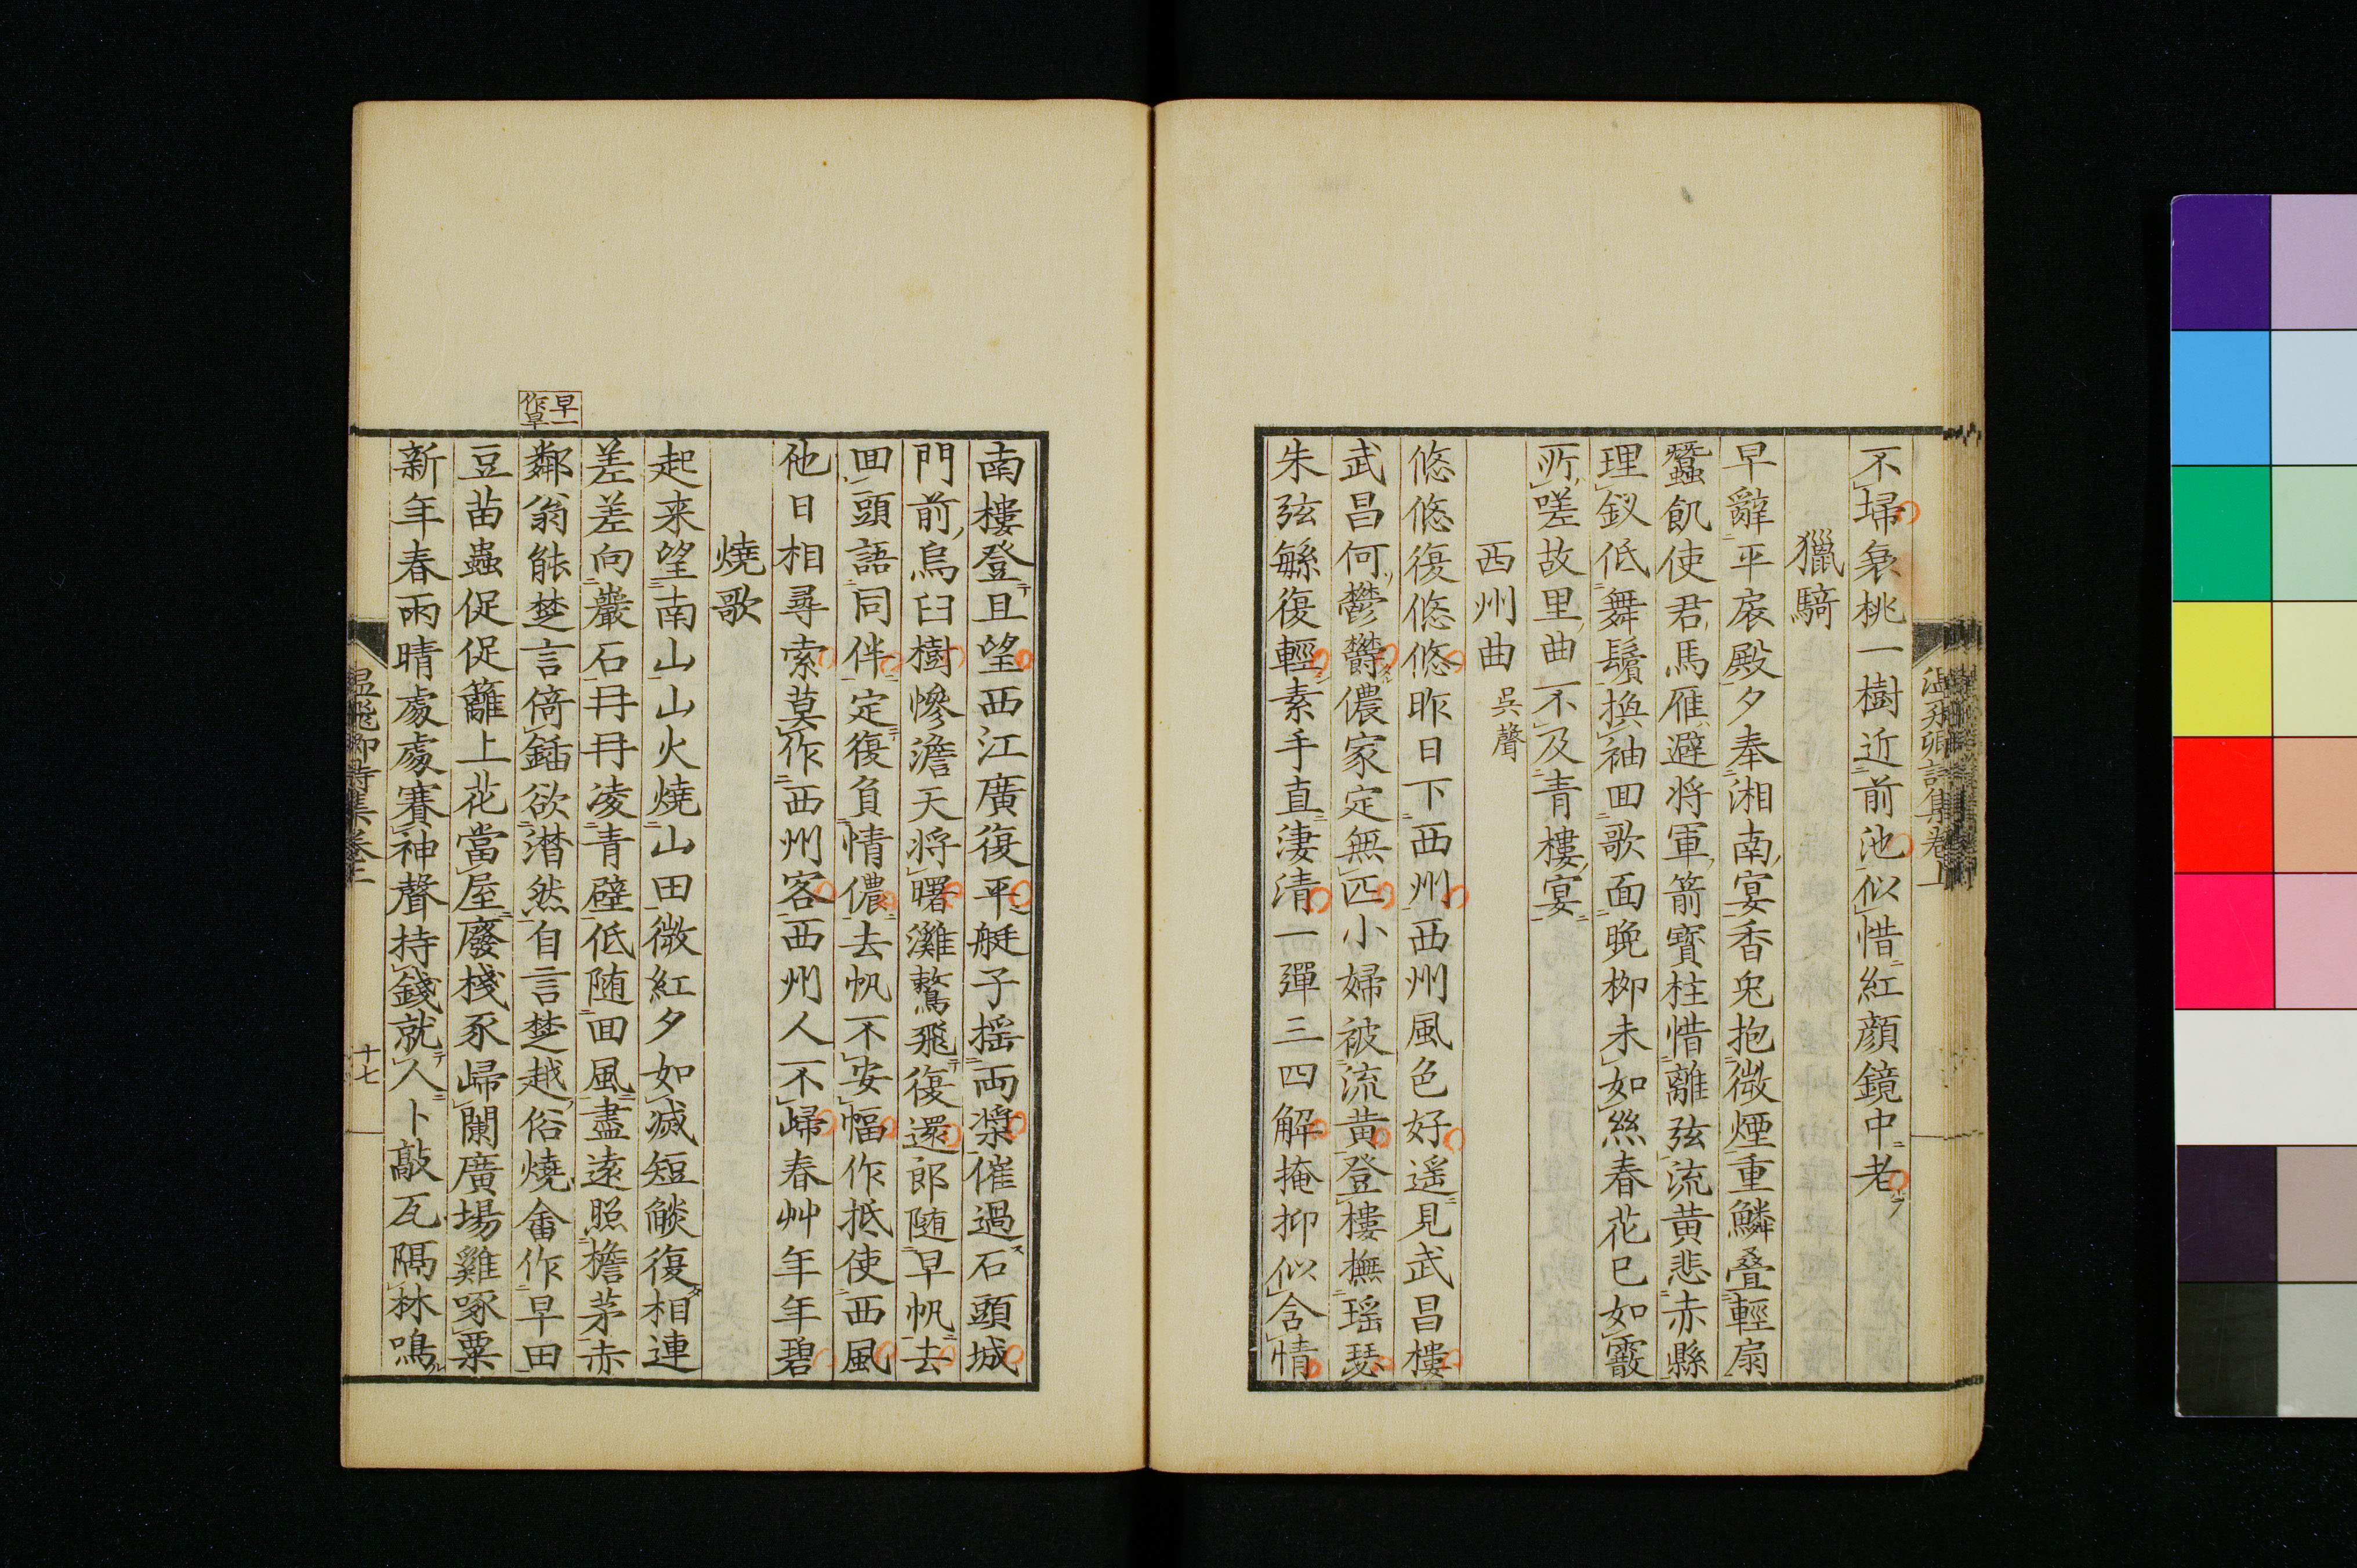 不掃衰桃一樹近前池似惜紅顔鏡中老
獵騎
早辭平扆殿夕奉湘南宴香兒抱微煙重鱗叠輕扇
蠶飢使君馬雁避将軍箭寳柱惜離弦流黄悲赤縣
理釵低舞鬢換袖囬歌面晩栁未如絲春花已如霰
所嗟故里曲不及青樓宴
西州曲 吳聲
悠悠復悠悠昨日下西州西州風色好遥見武昌樓
武昌何鬱鬱儂家定無匹小婦被流黄登樓撫瑶瑟
朱弦緐復輕素手直淒清一彈三四解掩抑似含情
南樓登且望西江廣復平艇子揺両槳催過石頭城
門前烏臼樹慘澹天将曙灘鶩飛復還郎随早帆去
囬頭語同伴定復負情儂去帆不安幅作抵使西風
他日相尋索莫作西州客西州人不歸春艸年年碧
燒歌
起来望南山山火燒山田微紅夕如滅短燄復相連
差差向巖石冉冉凌青壁低随囬風盡遠照檐茅赤
鄰翁能楚言倚鍤欲潸然自言楚越俗燒畬作早田
豆苗蟲促促籬上花當屋廢棧豕歸闌廣場雞啄粟
新年春雨晴處處賽神聲持錢就人卜敲瓦隔林鳴
早一
作旱
温飛卿詩集卷上
十七